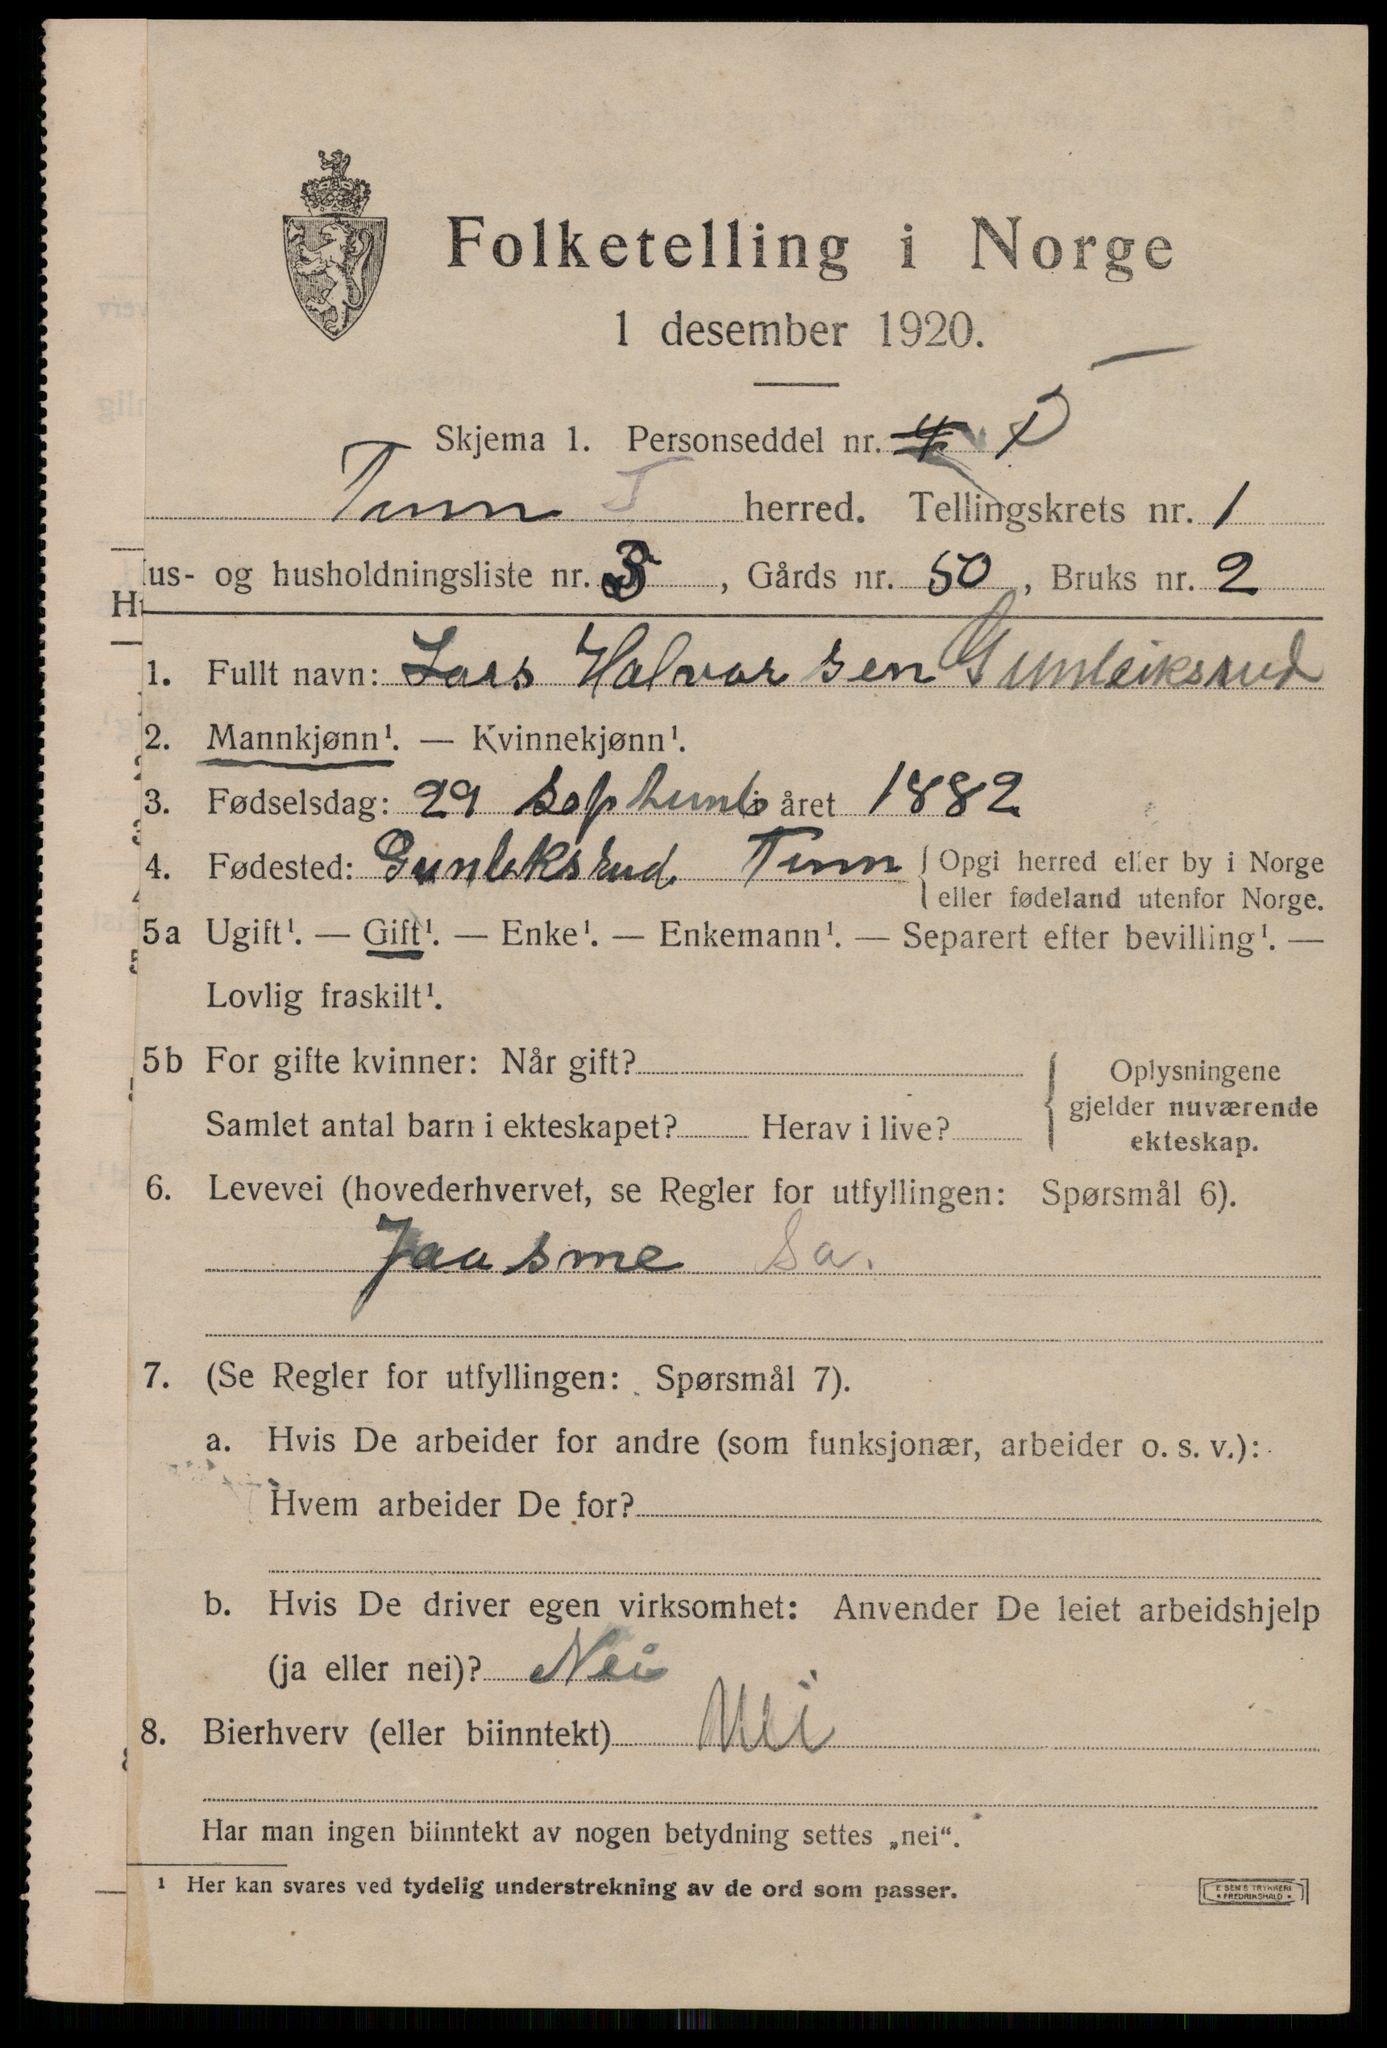 Folketelling i Norge
1 desember 1920.
Skjema 1. Personseddel nr. 4 1
Tinn herred. Tellingskrets nr. 1
us- og husholdningsliste nr. 3, Gårds nr. 50, Bruks nr. 2
1. Fullt navn: Lars Halvorsen Gunleiksrud
2. Mannkjønn¹. — Kvinnekjønn¹.
3. Fødselsdag: 29 i året 1882
4. Fødested: Gunleksrud. Tinn { Opgi herred eller by i Norge
eller fødeland utenfor Norge.
5a Ugift¹. — Gift¹. — Enke¹. — Enkemann¹. — Separert efter bevilling¹. —
Lovlig fraskilt¹.
5b For gifte kvinner: Når gift?
Samlet antal barn i ekteskapet? Herav i live?
Oplysningene
gjelder nuværende
ekteskap.
6. Levevei (hovederhvervet, se Regler for utfyllingen: Spørsmål 6).
Sa.
7. (Se Regler for utfyllingen: Spørsmål 7).
a. Hvis De arbeider for andre (som funksjonær, arbeider o. s. v.):
Hvem arbeider De for?
b. Hvis De driver egen virksomhet: Anvender De leiet arbeidshjelp
(ja eller nei)? Nei
8. Bierhverv (eller biinntekt) Nei
Har man ingen biinntekt av nogen betydning settes „nei“.
¹ Her kan svares ved tydelig understrekning av de ord som passer.